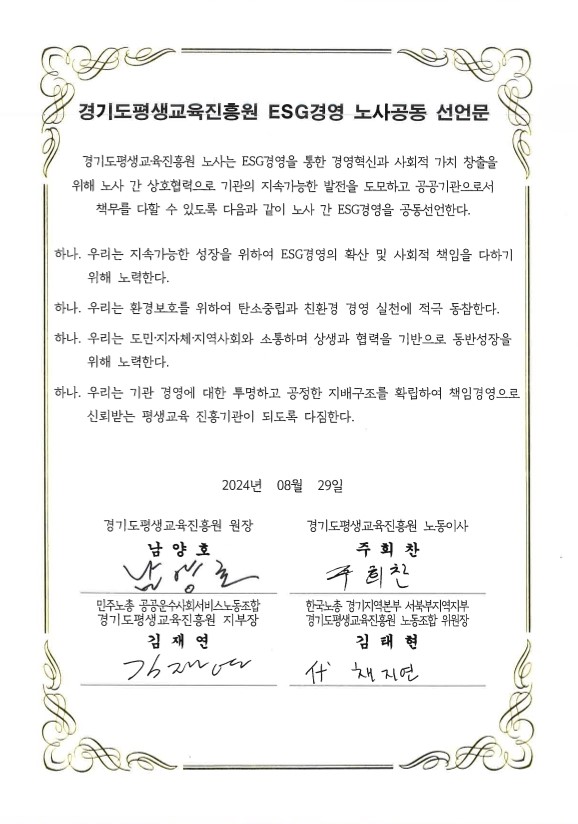 경기도평생교육진흥원 ESG경영 노사공동 선언문
경기도평생교육진흥원 노사는 ESG경영을 통한 경영혁신과 사회적 가치 창출을
위해 노사 간 상호협력으로 기관의 지속가능한 발전을 도모하고 공공기관으로서
책무를 다할 수 있도록 다음과 같이 노사 간 ESG경영을 공동선언한다.
하나. 우리는 지속가능한 성장을 위하여 ESG경영의 확산 및 사회적 책임을 다하기
위해 노력한다.
하나. 우리는 환경보호를 위하여 탄소중립과 친환경 경영 실천에 적극 동참한다.
하나. 우리는 도민·지자체·지역사회와 소통하며 상생과 협력을 기반으로 동반성장을
위해 노력한다.
하나. 우리는 기관 경영에 대한 투명하고 공정한 지배구조를 확립하여 책임경영으로
신뢰받는 평생교육 진흥기관이 되도록 다짐한다.
2024년 08월 29일
경기도평생교육진흥원 원장
남양호
남양호
경기도평생교육진흥원 노동이사
주희찬
주희찬
민주노총 공공운수사회서비스노동조합
경기도평생교육진흥원 지부장
김재연
김재연
한국노총 경기지역본부 서북부지역지부
경기도평생교육진흥원 노동조합 위원장
김태현
代 채지연